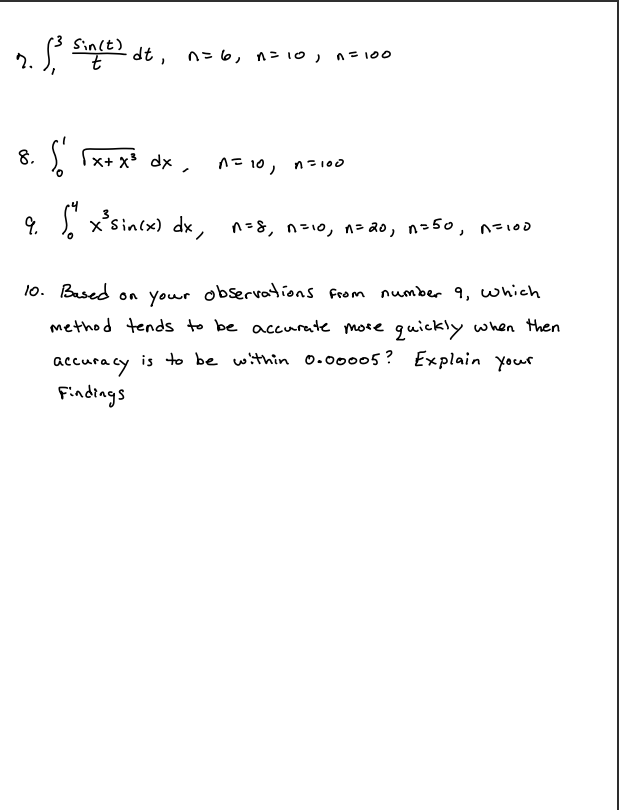 7. ∫₁³ Sin(t)/t dt, n=6, n=10, n=100
8. ∫₀¹ √(x+x³) dx, n=10, n=100
9. ∫₀⁴ x³sin(x) dx, n=8, n=10, n=20, n=50, n=100
10. Based on your observations from number 9, which
method tends to be accurate more quickly when then
accuracy is to be within 0.00005? Explain your
Findings